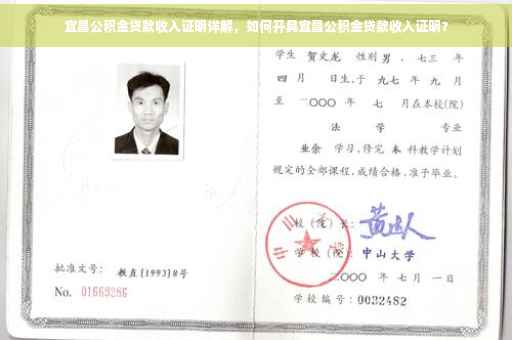 宜昌公积金贷款收入证明详解，如何开具宜昌公积金贷款收入证明？
学生 贺文龙 性别 男 、七三 年
四 月 日生,于 九七 年 九 月
至 二〇〇〇 年 七 月在本校(院)
法 学 专业
业余 学习,修完 本 科教学计划
规定的全部课程,成绩合格,准予毕业。
校(院)长:
学校(院): 中山大学
二〇〇〇 年 七 月 一 日
批准文号: 教直[1993]8号
No. 01669286
学校编号: 0032482